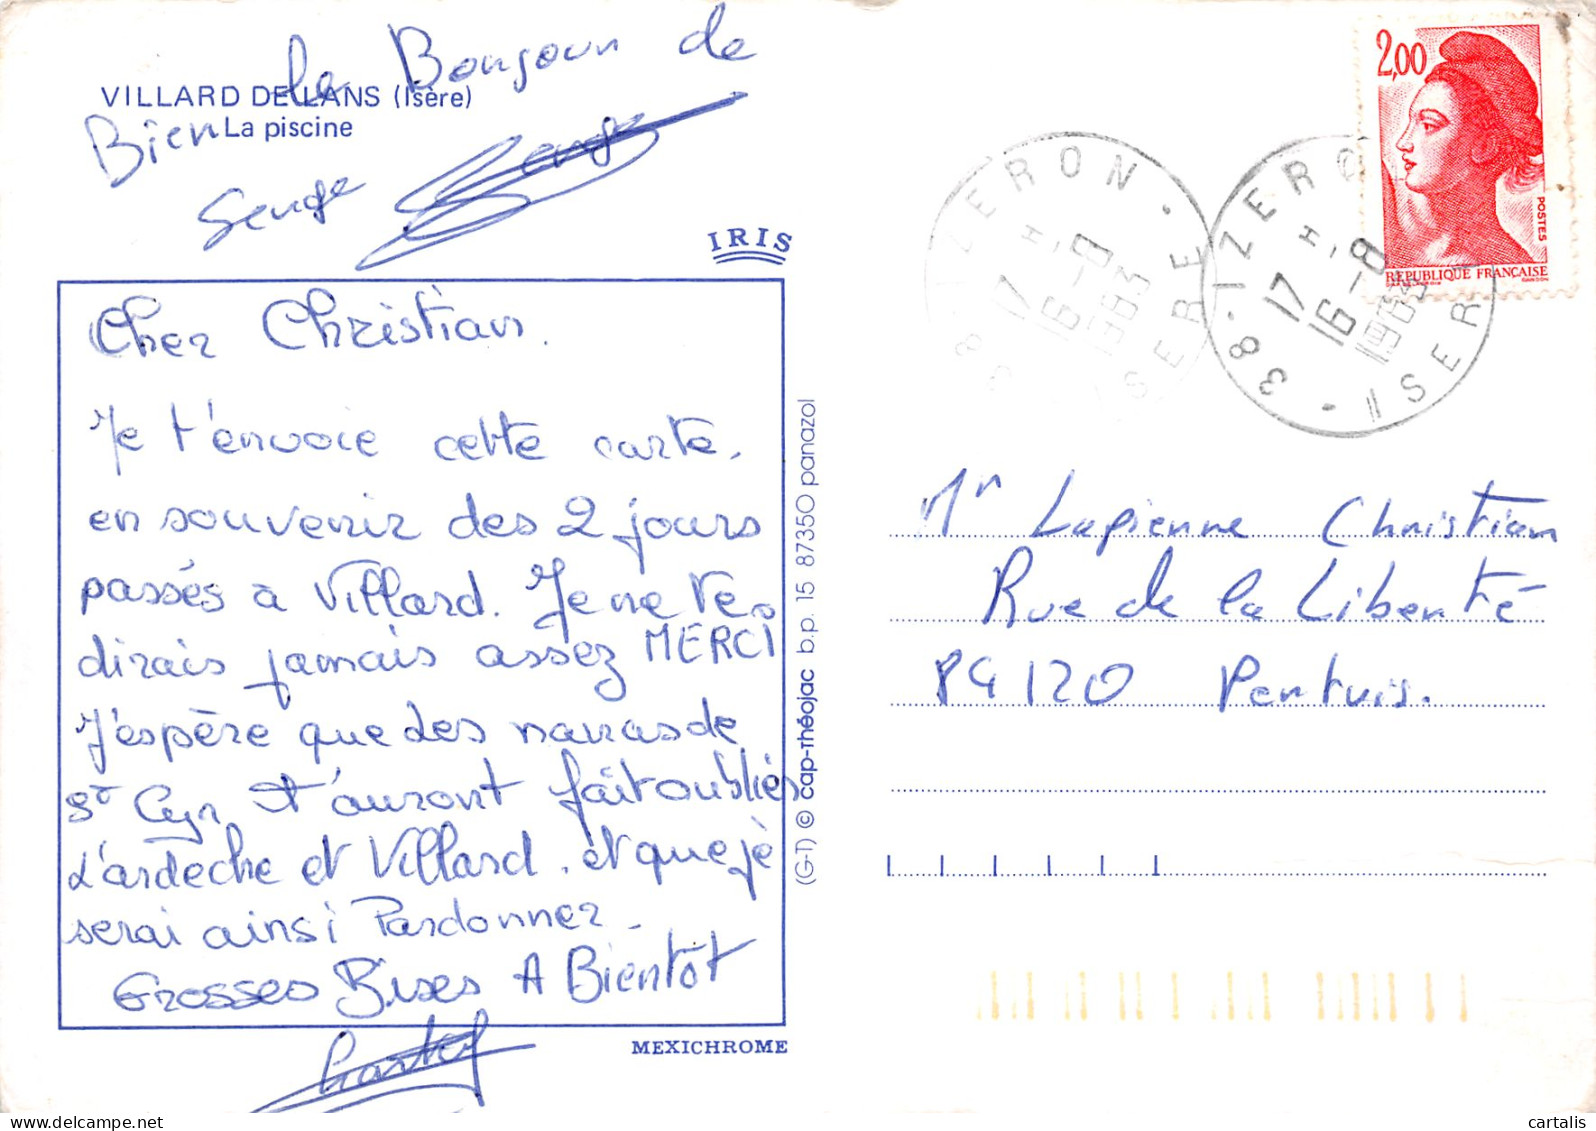 VILLARD DE LANS (Isère)
La piscine
Bien le Bonjour de
Serge
IRIS
Cher Christian.
Je t'envoie cette carte.
en souvenir des 2 jours
passés à Villard. Je ne te
dirais jamais assez MERCI
J'espère que des
St Cyr t'auront fait oubliés
L'ardèche et Villard. et que jè
serai ainsi Pardonner.
Grosses Bises A Bientôt
MEXICHROME
(G-T) © cap-théojac b.p. 15 87350 panazol
2,00
POSTES
REPUBLIQUE FRANÇAISE
38 · IZERON · ISERE
17 H
16-8
1983
38 · IZERON · ISERE
17 H
16-8
1983
Mr Lapienne Christian
Rue de la Liberté
84120 Pertuis.
cartalis
www.delcampe.net